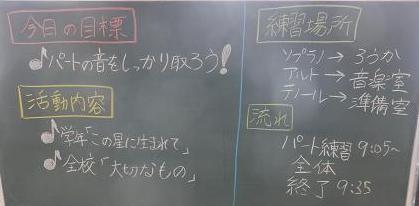 今日の目標
♪パートの音をしっかり取ろう!
活動内容
♪学年「この星に生まれて」
♪全校「大切なもの」
練習場所
ソプラノ→ろうか
アルト→音楽室
テノール→準備室
流れ
パート練習 9:05~
全体
終了 9:35